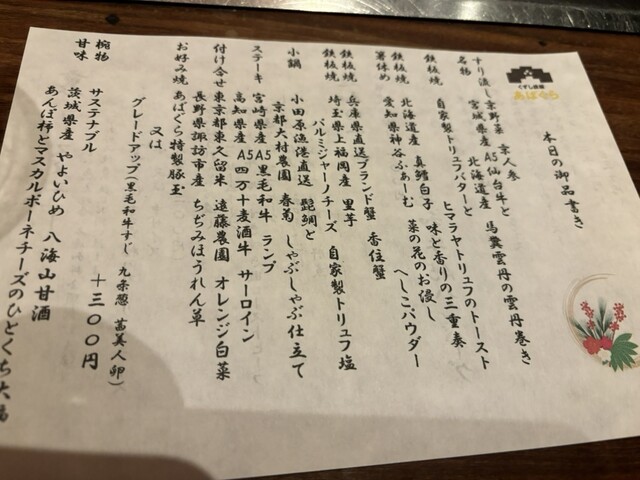 くずし鉄板
あばぐら
本日の御品書き
すり流し 京野菜 京人参
宮城県産 A5仙台牛と 北海道産 馬糞雲丹の雲丹巻き
名物 自家製トリュフバターと ヒマラヤトリュフのトースト
味と香りの三重奏
鉄板焼 北海道産 真鱈白子 菜の花のお浸し
箸休め 愛知県神谷ふぁーむ へしこパウダー
鉄板焼 兵庫県直送ブランド蟹 香住蟹
鉄板焼 埼玉県上福岡産 里芋 自家製トリュフ塩
パルミジャーノチーズ
小鍋 小田原漁港直送 髭鯛と しゃぶしゃぶ仕立て
京都大村農園 春菊
ステーキ 宮崎県産A5黒毛和牛 ランプ
高知県産 A5四万十麦酒牛 サーロイン
付け合せ 東京都東久留米 遠藤農園 オレンジ白菜
長野県諏訪市産 ちぢみほうれん草
お好み焼 あばぐら特製豚玉
又は
グレードアップ(黒毛和牛すじ 九条葱 茜美人卵)
+三〇〇円
椀物 サステナブル
甘味 茨城県産 やよいひめ 八海山甘酒
あんぽ柿とマスカルポーネチーズのひとくち大福